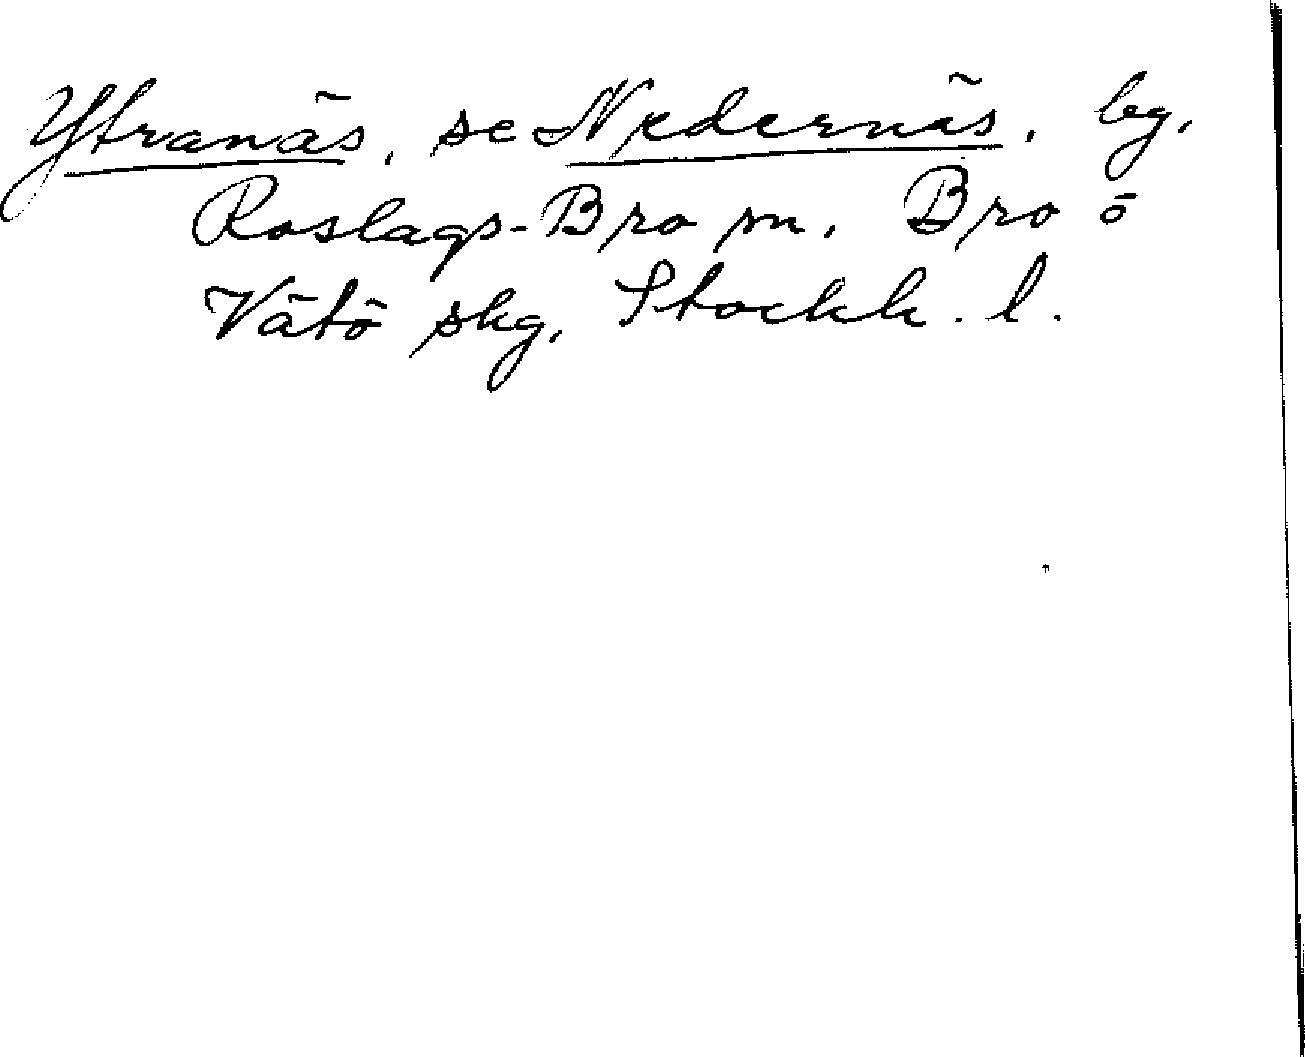 Ytranäs, se Nedernäs, bg,
Roslags-Bro sn, Bro o
Vätö skg, Stockh. l.